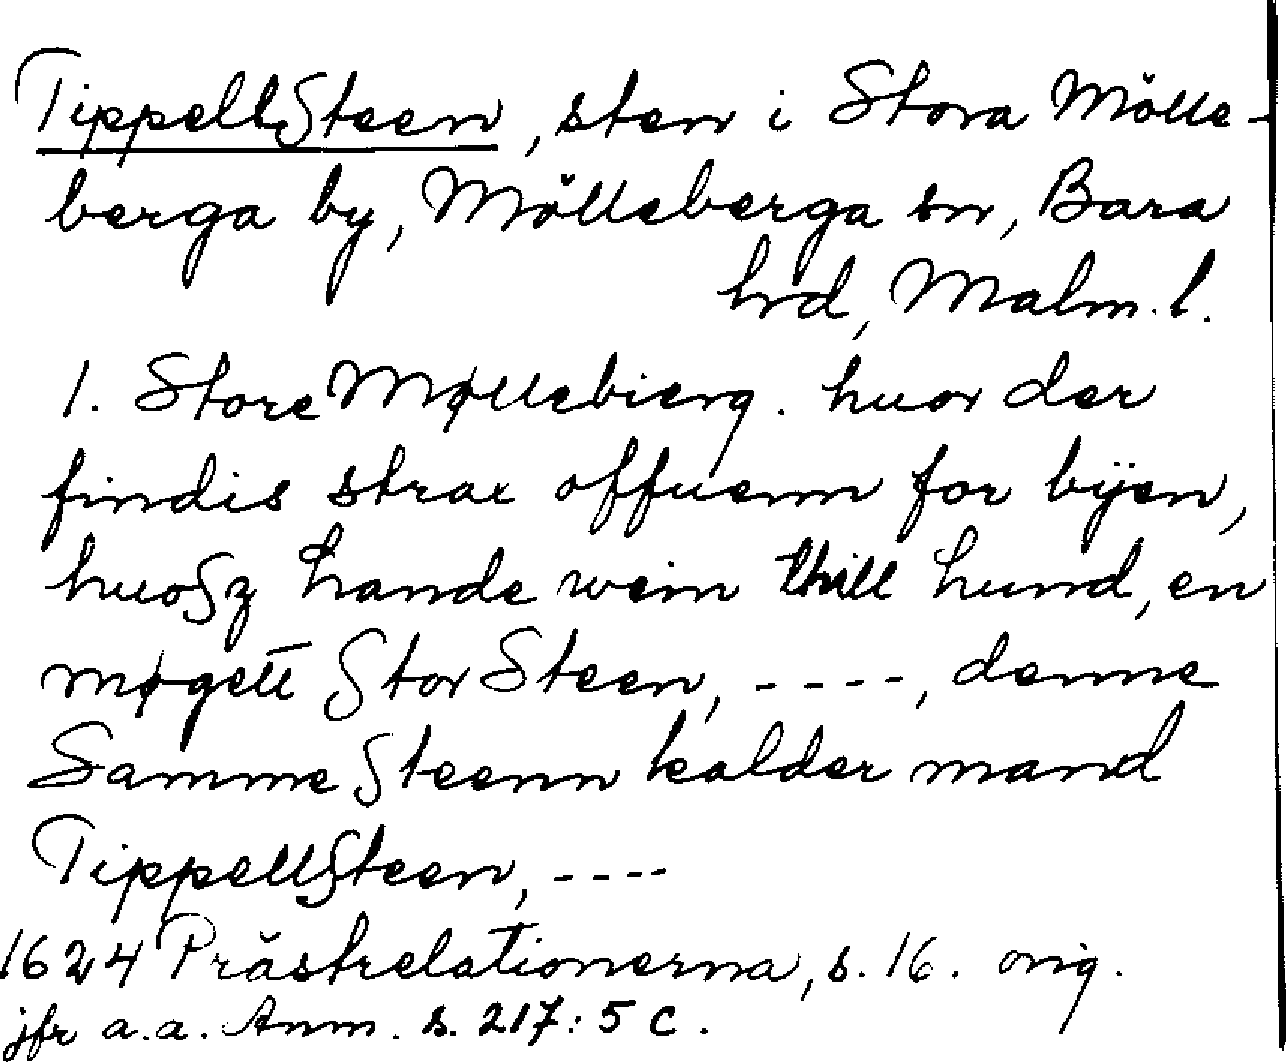 TippellSteen, sten i Stora Mölle-
berga by, Mölleberga sn, Bara
hrd, Malm. l.
1. Store Møllebierg. huor der
findis strax offuenn for bÿen,
huoSz hande wein thill hund, en
møgett Stor Steen, - - - -, denne
Samme Steenn kalder mand
TippellSteen, - - - -
1624 Prästrelationerna, s. 16. orig.
jfr a.a. Anm. s. 217: 5 c.